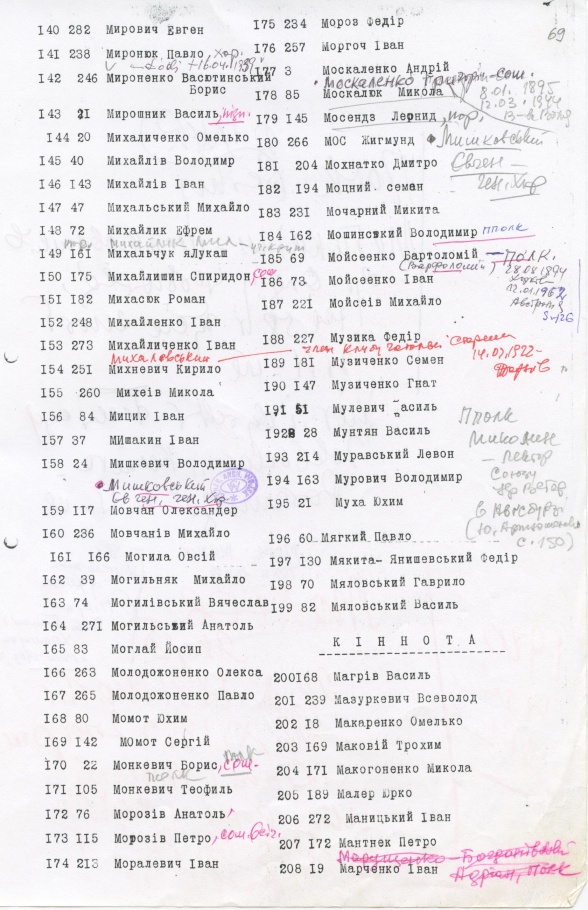 69
I40 282 Мирович Евген
I4I 238 Миронюк Павло, хор.
I42 246 Мироненко Васютинський
Борис
I43 2I Мирошник Василь,
I44 20 Михаличенко Омелько
I45 40 Михайлів Володимр
I46 I43 Михайлів Іван
I47 47 Михальський Михайло
I48 72 Михайлик Ефрем
I49 I6I Михальчук яЛукаш
I50 I75 Михайлишин Спиридон, сот
I5I I82 Михасюк Роман
I52 248 Михайленко Іван
I53 273 Михайличенко Іван
Михаловський
I54 25I Михневич Кирило
I55 260 Михеів Микола
I56 84 Мицик Іван
I57 37 МИшакин Іван
I58 24 Мишкевич Володимир
Мишковський
Євген, ген. Хор
I59 II7 Мовчан Олександер
I60 236 Мовчанів Михайло
I6I I66 Могила Овсій
I62 39 Могильняк Михайло
I63 74 Могилівський Вячеслав
I64 27I Могильський Анатоль
I65 83 Моглай Йосип
I66 263 Молодожоненко Олекса
I67 265 Молодожоненко Павло
I68 80 Момот Юхим
I69 I42 МОмот Сергій
I70 22 Монкевич Борис, сот.
полк
I7I I05 Монкевич Теофиль
I72 76 Морозів Анатоль
I73 II5 Морозів Петро, сот.
I74 213 Моралевич Іван
I75 234 Мороз Федір
I76 257 Моргоч Іван
I77 3 Москаленко Андрій
Москаленко Григорій - сот.
8.01.1895
I78 85 Москалюк Микола
I79 I45 Мосендз Леонид, хор,
I80 266 МОС Жигмунд
Мишковський
Євген -
ген. Хор
I8I 204 Мохнатко Дмитро
I82 I94 Моцний семан
I83 23I Мочарний Микита
I84 I62 Мошинський Володимир пполк
I85 69 Мойсеенко Бартоломій - полк.
(Варфоломій) 28.08.1894
I86 73 Мойсеенко Іван
I87 22I Мойсеів Михайло
I88 227 Музика Федір
14.07.1922-
I89 I8I Музиченко Семен
I90 I47 Музиченко Гнат
I9I 5I Мулевич Василь
I92 28 Мунтян Василь
I93 2I4 Муравський Левон
I94 I63 Мурович Володимир
I95 2I Муха Юхим
Пполк
Союзу
с. 150)
I96 60 Мягкий Павло
I97 I30 Мякита- Янишевський Федір
I98 70 Мяловський Гаврило
I99 82 Мяловський Василь
К І Н Н О Т А
200I68 Магрів Василь
20I 239 Мазуркевич Всеволод
202 I8 Макаренко Омелько
203 I69 Маковій Трохим
204 I7I Макогоненко Микола
205 I89 Малер Юрко
206 272 Маницький Іван
207 I72 Мантнек Петро
Марущенко - Богданівський
Адріан, полк
208 I9 Марченко Іван